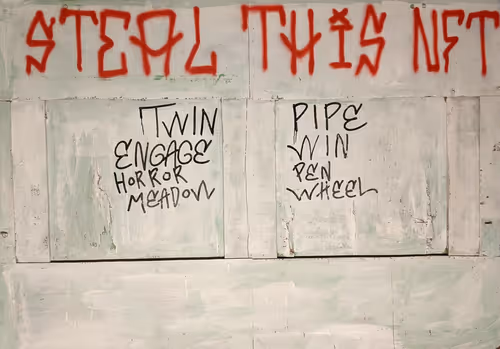 STEAL THIS NFT
TWIN
ENGAGE
HORROR
MEADOW
PIPE
WIN
PEN
WHEEL